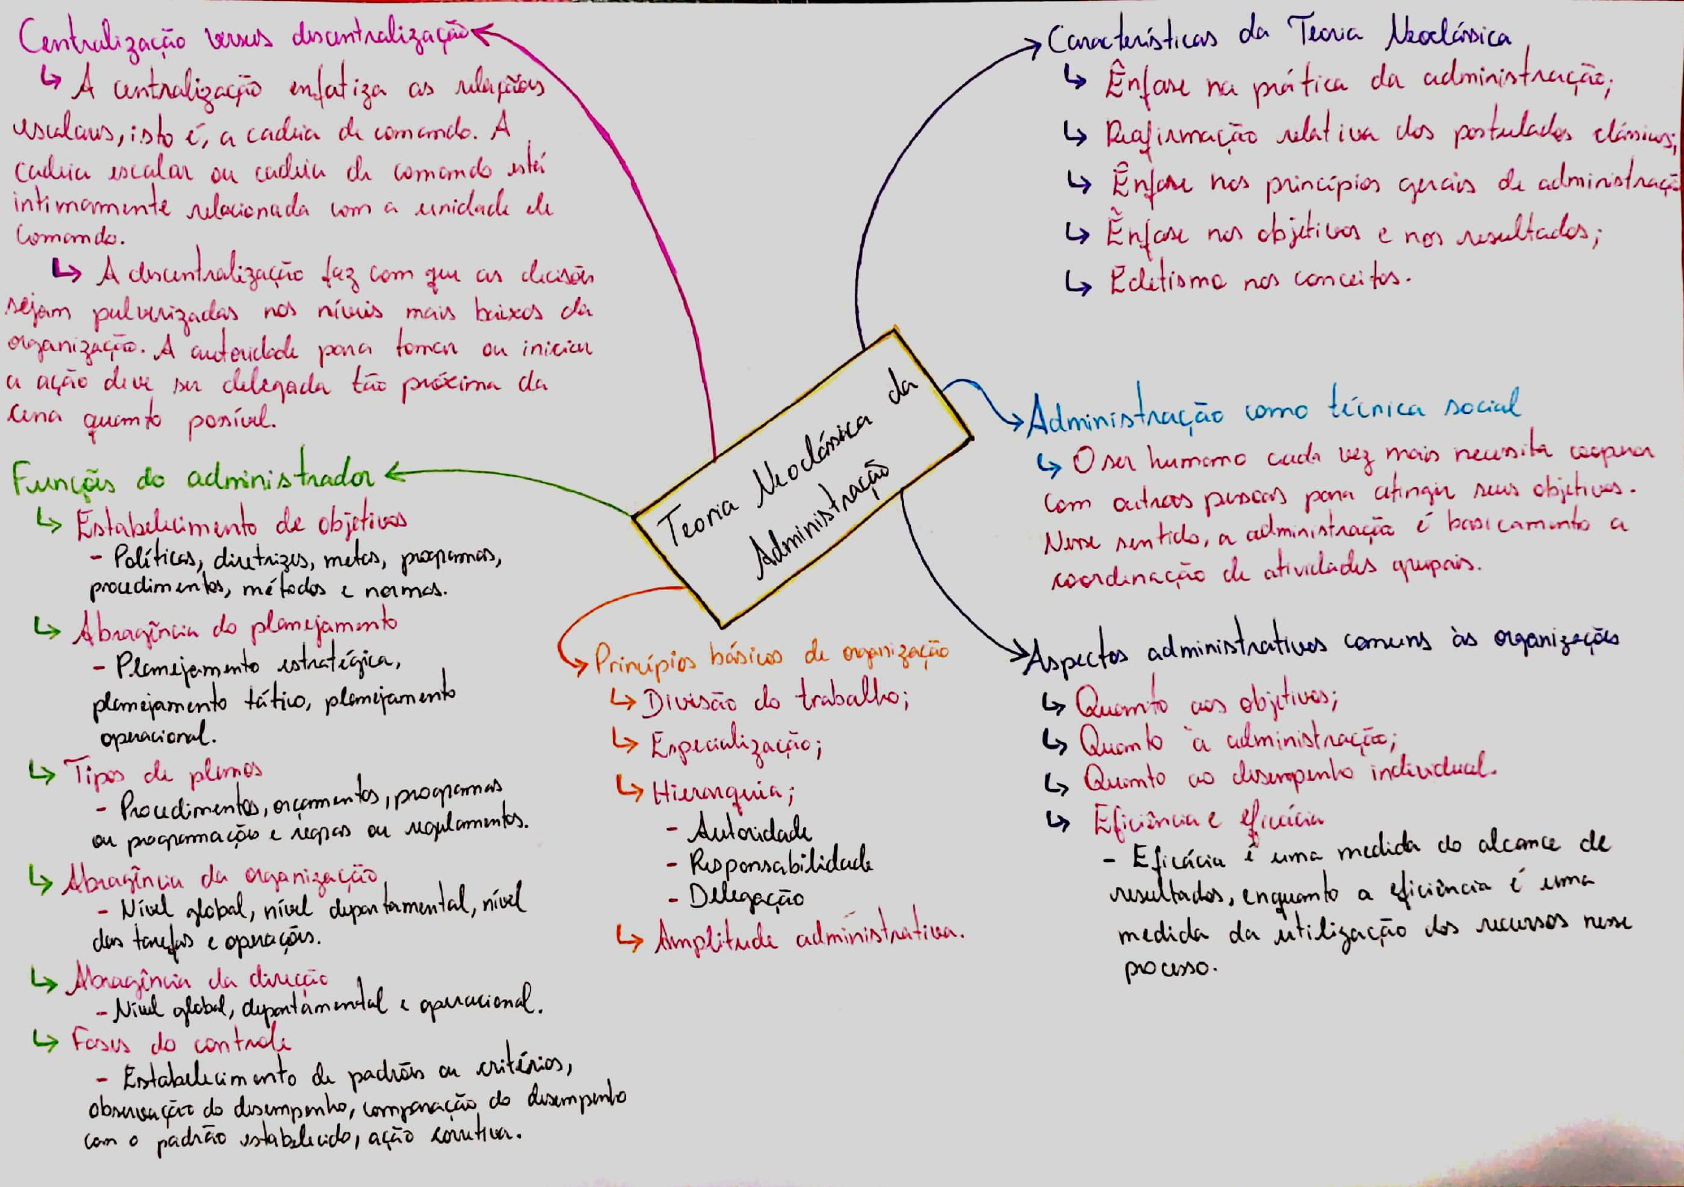 Centralização versus descentralização
↳ A centralização enfatiza as relações
escalares, isto é, a cadeia de comando. A
cadeia escalar ou cadeia de comando está
intimamente relacionada com a unidade de
comando.
↳ A descentralização faz com que as decisões
sejam pulverizadas nos níveis mais baixos da
organização. A autoridade para tomar ou iniciar
a ação deve ser delegada tão próxima da
cena quanto possível.
Funções do administrador
↳ Estabelecimento de objetivos
- Políticas, diretrizes, metas, programas,
procedimentos, métodos e normas.
↳ Abragência do planejamento
- Planejamento estratégico,
planejamento tático, planejamento
operacional.
↳ Tipos de planos
- Procedimentos, orçamentos, programas
ou programação e regras ou regulamentos.
↳ Abragência da organização
- Nível global, nível departamental, nível
das tarefas e operações.
↳ Abragência da direção
- Nível global, departamental e operacional.
↳ Fases do controle
- Estabelecimento de padrões ou critérios,
observação do desempenho, comparação do desempenho
com o padrão estabelecido, ação corretiva.
Teoria Neoclássica da
Administração
Princípios básicos de organização
↳ Divisão do trabalho;
↳ Especialização;
↳ Hierarquia;
- Autoridade
- Responsabilidade
- Delegação
↳ Amplitude administrativa.
Características da Teoria Neoclássica
↳ Ênfase na prática da administração;
↳ Reafirmação relativa dos postulados clássicos;
↳ Ênfase nos princípios gerais de administração
↳ Ênfase nos objetivos e nos resultados;
↳ Ecletismo nos conceitos.
Administração como técnica social
↳ O ser humano cada vez mais necessita cooperar
com outras pessoas para atingir seus objetivos.
Nesse sentido, a administração é basicamente a
coordenação de atividades grupais.
Aspectos administrativos comuns às organizações
↳ Quanto aos objetivos;
↳ Quanto à administração;
↳ Quanto ao desempenho individual.
↳ Eficiência e eficácia
- Eficácia é uma medida do alcance de
resultados, enquanto a eficiência é uma
medida da utilização dos recursos nesse
processo.